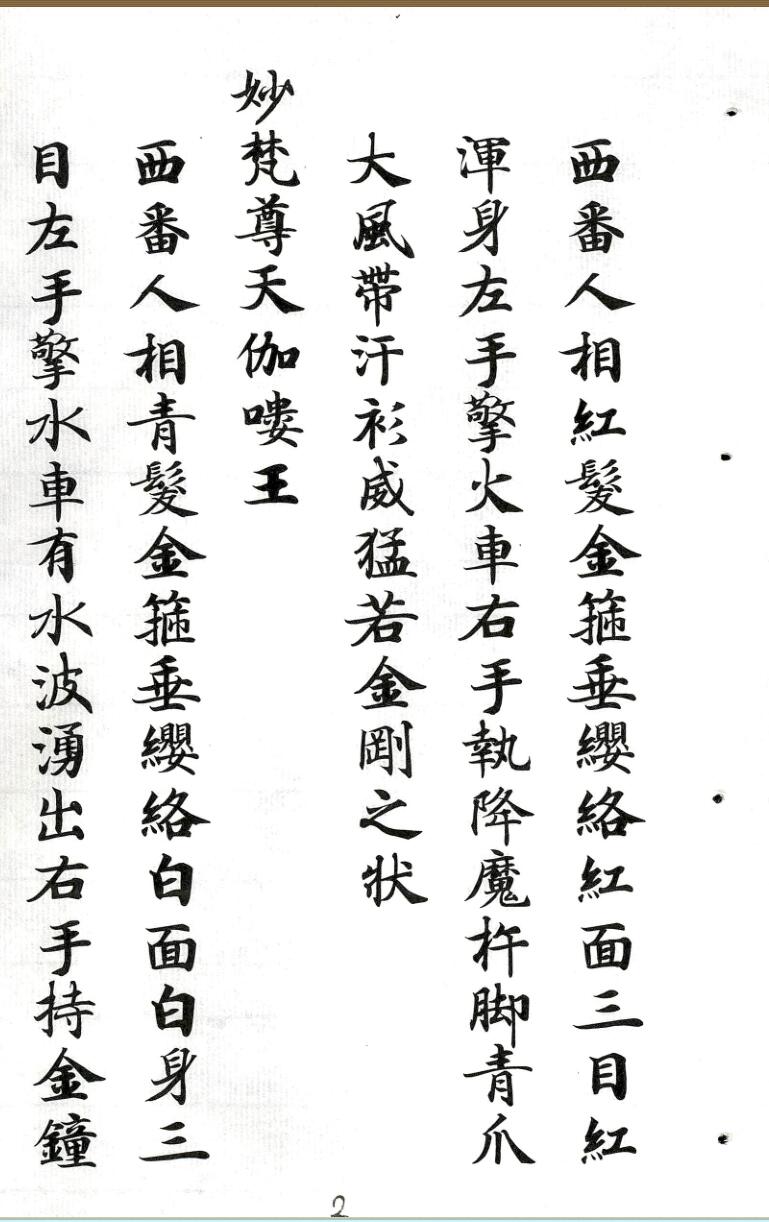 西番人相紅髮金箍垂纓絡紅面三目紅
渾身左手擎火車右手執降魔杵脚青爪
大風帶汗衫威猛若金剛之狀
妙梵尊天伽嘍王
西番人相青髮金箍垂纓絡白面白身三
目左手擎水車有水波湧出右手持金鐘
2